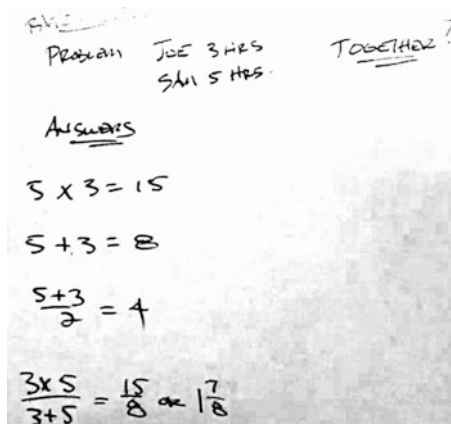 PROBLEM JOE 3 HRS TOGETHER?
SAM 5 HRS.
ANSWERS
5 x 3 = 15
5 + 3 = 8
5+3/2 = 4
3x5/3+5 = 15/8 or 1 7/8